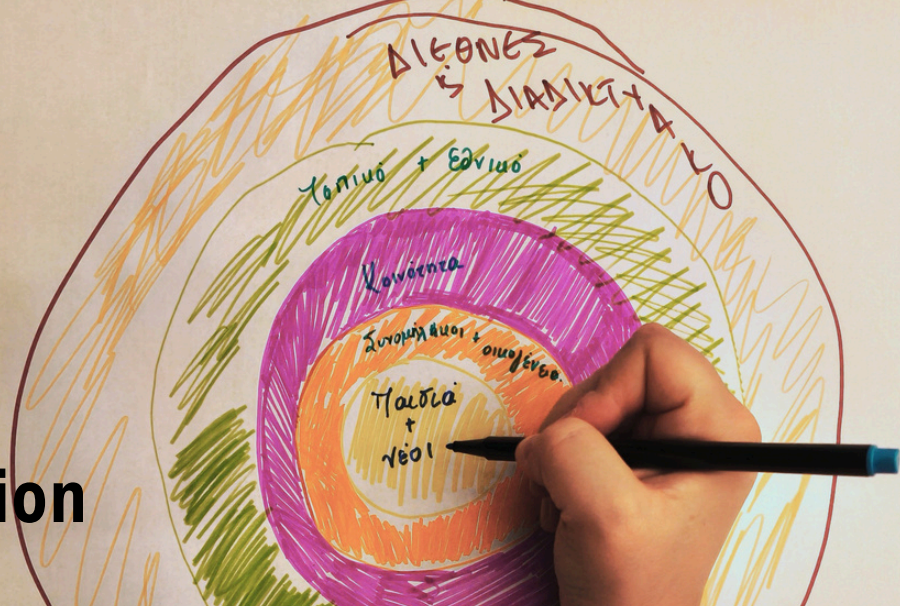 ΔΙΕΘΝΕΣ
& ΔΙΑΔΙΚΤΥΑΚΟ
Τοπικό + Εθνικό
Κοινότητα
Συνομήλικοι +
οικογένεια
Παιδιά
+
νέοι
ion